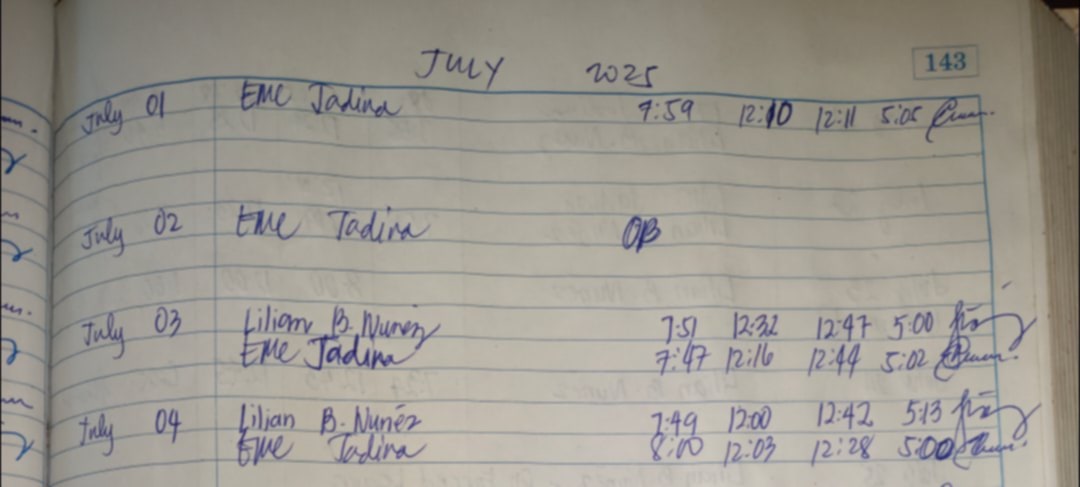 JULY 2025 143
July 01 EMe Jadina 7:59 12:10 12:11 5:05
July 02 EMe Jadina OB
July 03 Lilian B. Nunez 7:51 12:32 12:47 5:00
EMe Jadina 7:47 12:16 12:44 5:02
July 04 Lilian B. Nunéz 7:49 12:00 12:42 5:13
EMe Jadina 8:00 12:03 12:28 5:00